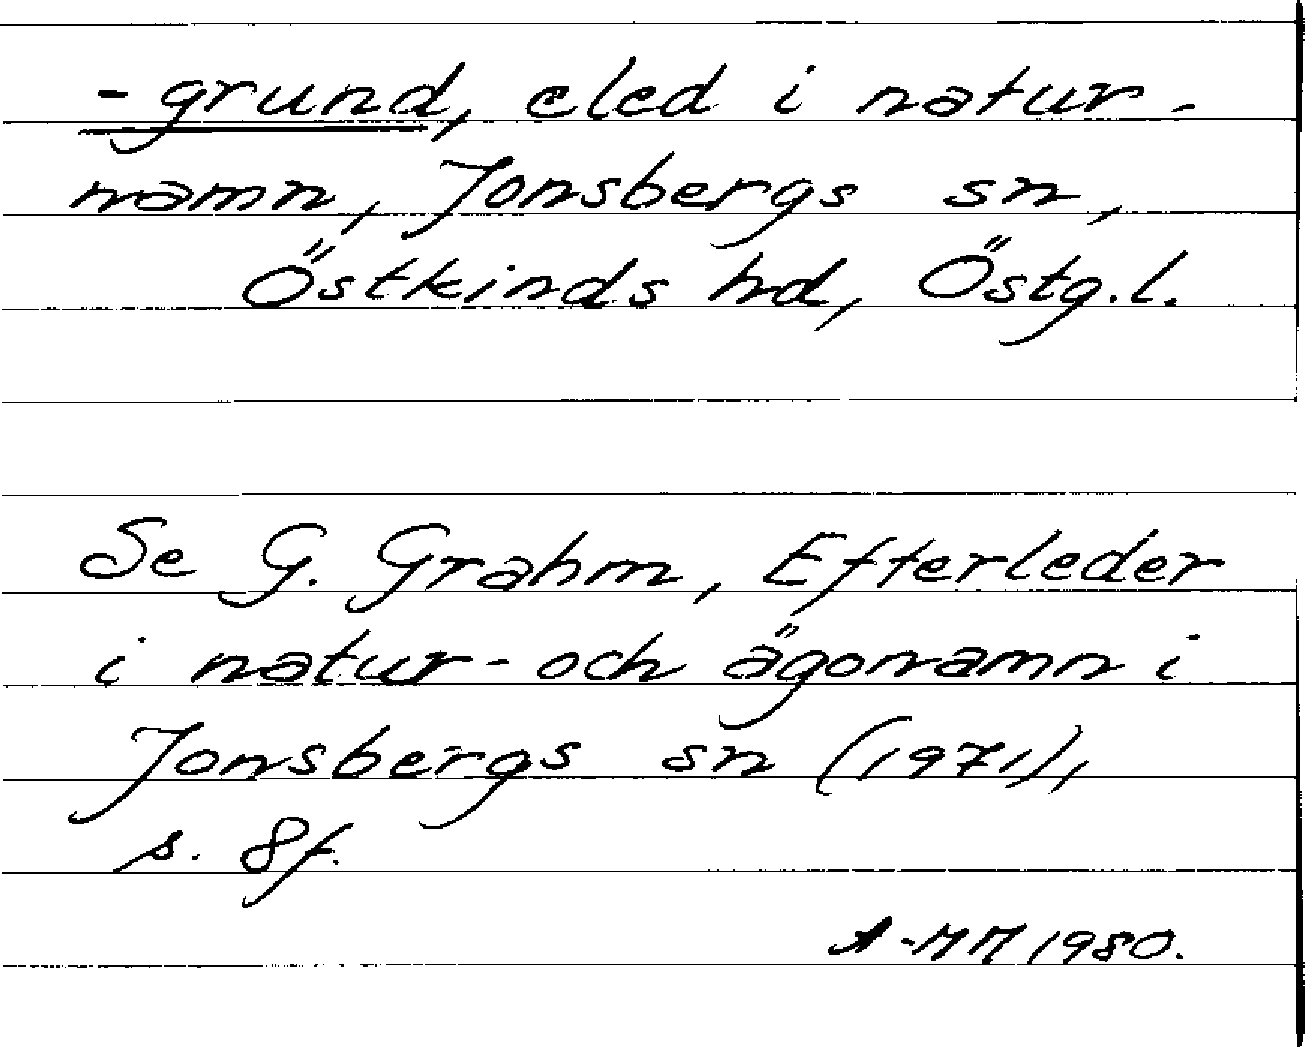 -grund, eled i natur-
namn, Jonsbergs sn,
Östkinds hd, Östg.l.
Se G. Grahm, Efterleder
i natur- och ägonamn i
Jonsbergs sn (1971),
s. 8f.
A-MM 1980.